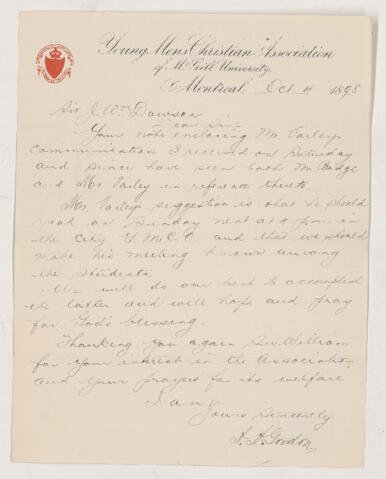 Young Men's Christian Association
of McGill University.
Montreal, Oct. 4 1898
Sir J. Wm Dawson
Dear Sir:-
Your note enclosing Mr. Varley's
communication I received on Saturday
and since have seen both Mr. Budge
and Mr Varley in reference thereto.
Mr. Varley's suggestion is that he should
speak on Sunday next at 8 p.m. in
the city Y.M.C.A. and that we should
make his meeting known among
the students.
We will do our best to accomplish
the latter and will hope and pray
for God's blessing.
Thanking you again Sir William
for your interest in the Association
and your prayers for its welfare
I am
Yours Sincerely,
A. A. Gordon